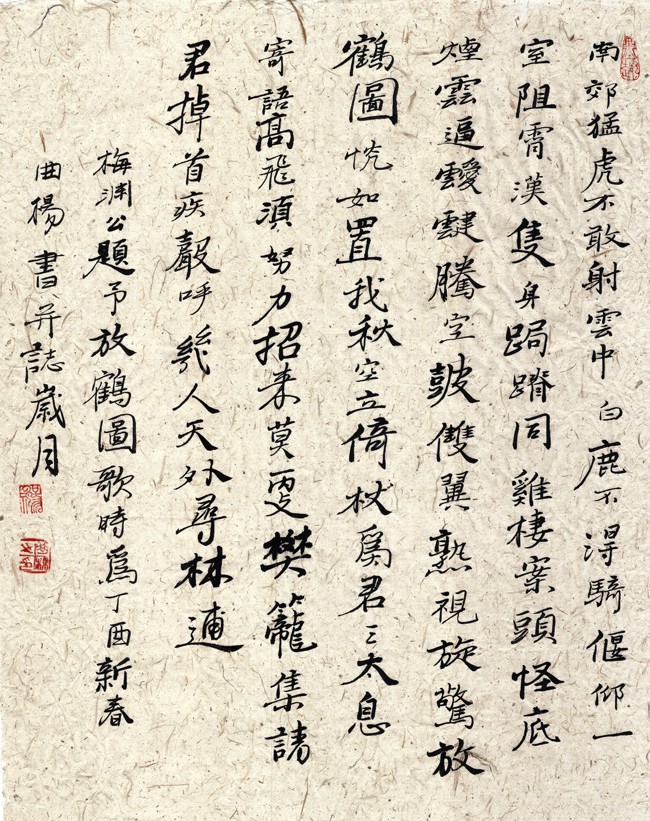 南郊猛虎不敢射雲中白鹿不得騎偃仰一
室阻霄漢隻身跼蹐同雞棲案頭怪底
煙雲逼靉靆騰空皷雙翼熟視旋驚放
鶴圖恍如置我秋空立倚杖爲君三太息
寄語高飛須努力招来莫更樊籠集請
君掉首疾聲呼幾人天外尋林逋
梅渊公題予放鶴圖歌時爲丁酉新春
曲楊書并誌歲月